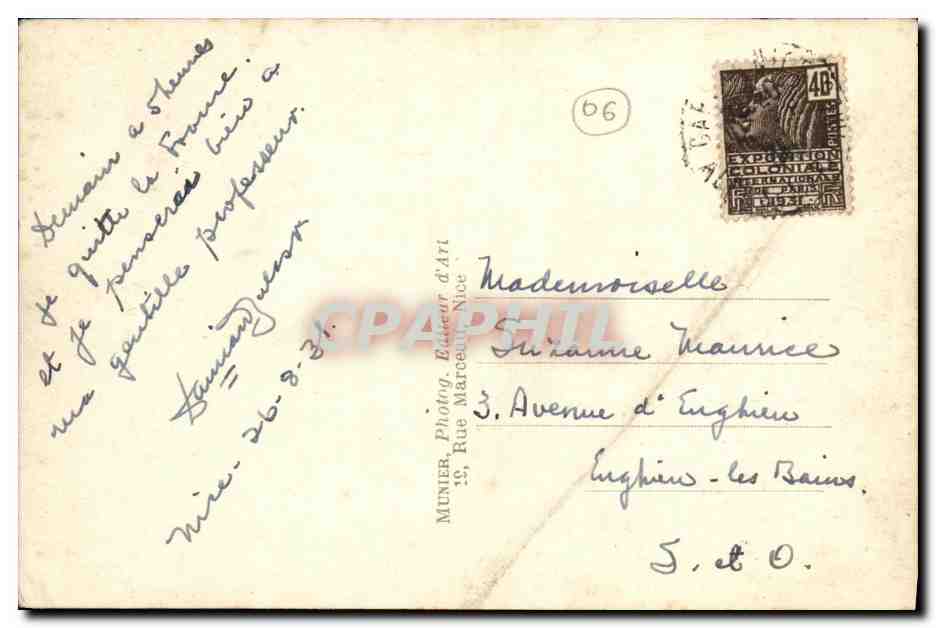 Demain a 5 heures
je quitte la France.
et je penserai bien à
ma gentille professeur.
Nice - 26-8-31.
06
40c
POSTES
EXPOSITION
COLONIALE
INTERNATIONALE
DE PARIS
1931
MUNIER, Photog. Editeur d'Art
12, Rue Marceau, Nice
CPAPHIL
Mademoiselle
Suzanne Maurice
3. Avenue d'Enghien
Enghien-les Bains.
S. et O.